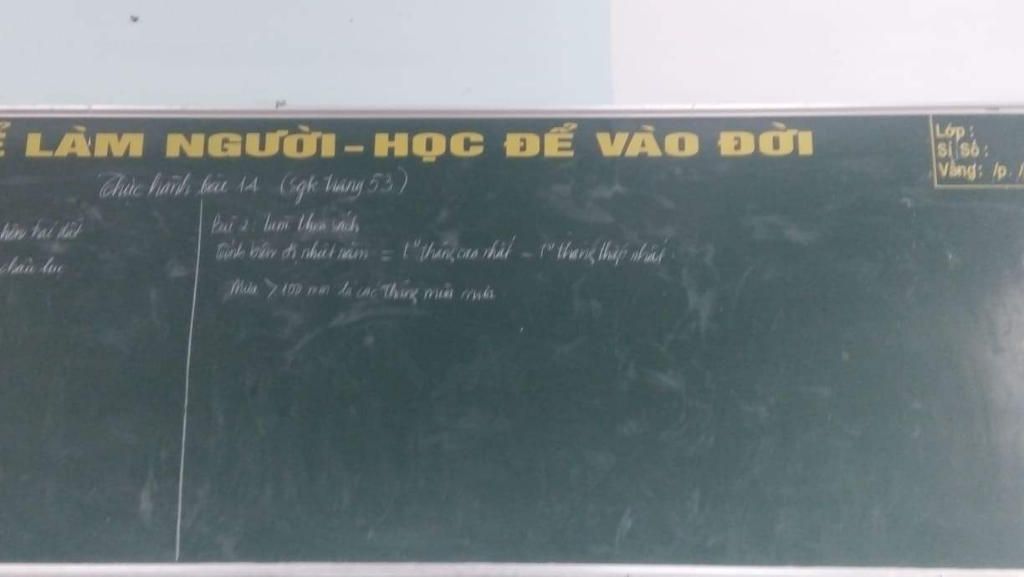 Ể LÀM NGƯỜI - HỌC ĐỂ VÀO ĐỜI
Lớp :
Sĩ Số :
Vắng: /p. /
Thực hành bài 14 (sgk trang 53)
châu lục
Bài 2: Làm theo sách
biên độ nhiệt năm = t° tháng cao nhất - t° tháng thấp nhất.
Mưa > 100 mm là các tháng mùa mưa